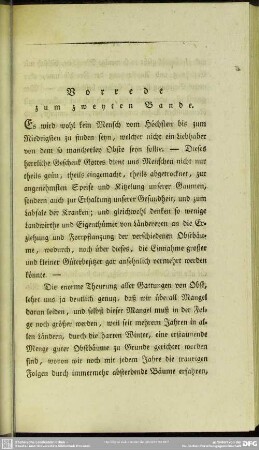 Vorrede
zum zweyten Bande.
Es wird wohl kein Mensch vom Höchsten bis zum
Niedrigsten zu finden seyn, welcher nicht ein Liebhaber
von dem so mancherley Obste seyn sollte. — Dieses
herrliche Geschenk Gottes dient uns Menschen nicht nur
theils grün, theils eingemacht, theils abgetrocknet, zur
angenehmsten Speise und Kitzelung unserer Gaumen,
sondern auch zur Erhaltung unserer Gesundheit, und zum
Labsale der Kranken; und gleichwohl denken so wenige
Landwirthe und Eigenthümer von Länderezen an die Er-
ziehung und Fortpflanzung der verschiedenen Obstbäu-
me, wodurch, noch über dieses, die Einnahme großer
und kleiner Güterbesitzer gar ansehnlich vermehrt werden
könnte. —
Die enorme Theurung aller Gattungen von Obst,
lehrt uns ja deutlich genug, daß wir überall Mangel
daran leiden, und selbst dieser Mangel muß in der Fol-
ge noch größer werden, weil seit mehrern Jahren in al-
len Ländern, durch die harten Winter, eine erstaunende
Menge guter Obstbäume zu Grunde gerichtet worden
sind, wovon wir noch mit jedem Jahre die traurigen
Folgen durch immermehr absterbende Bäume erfahren,
DFG